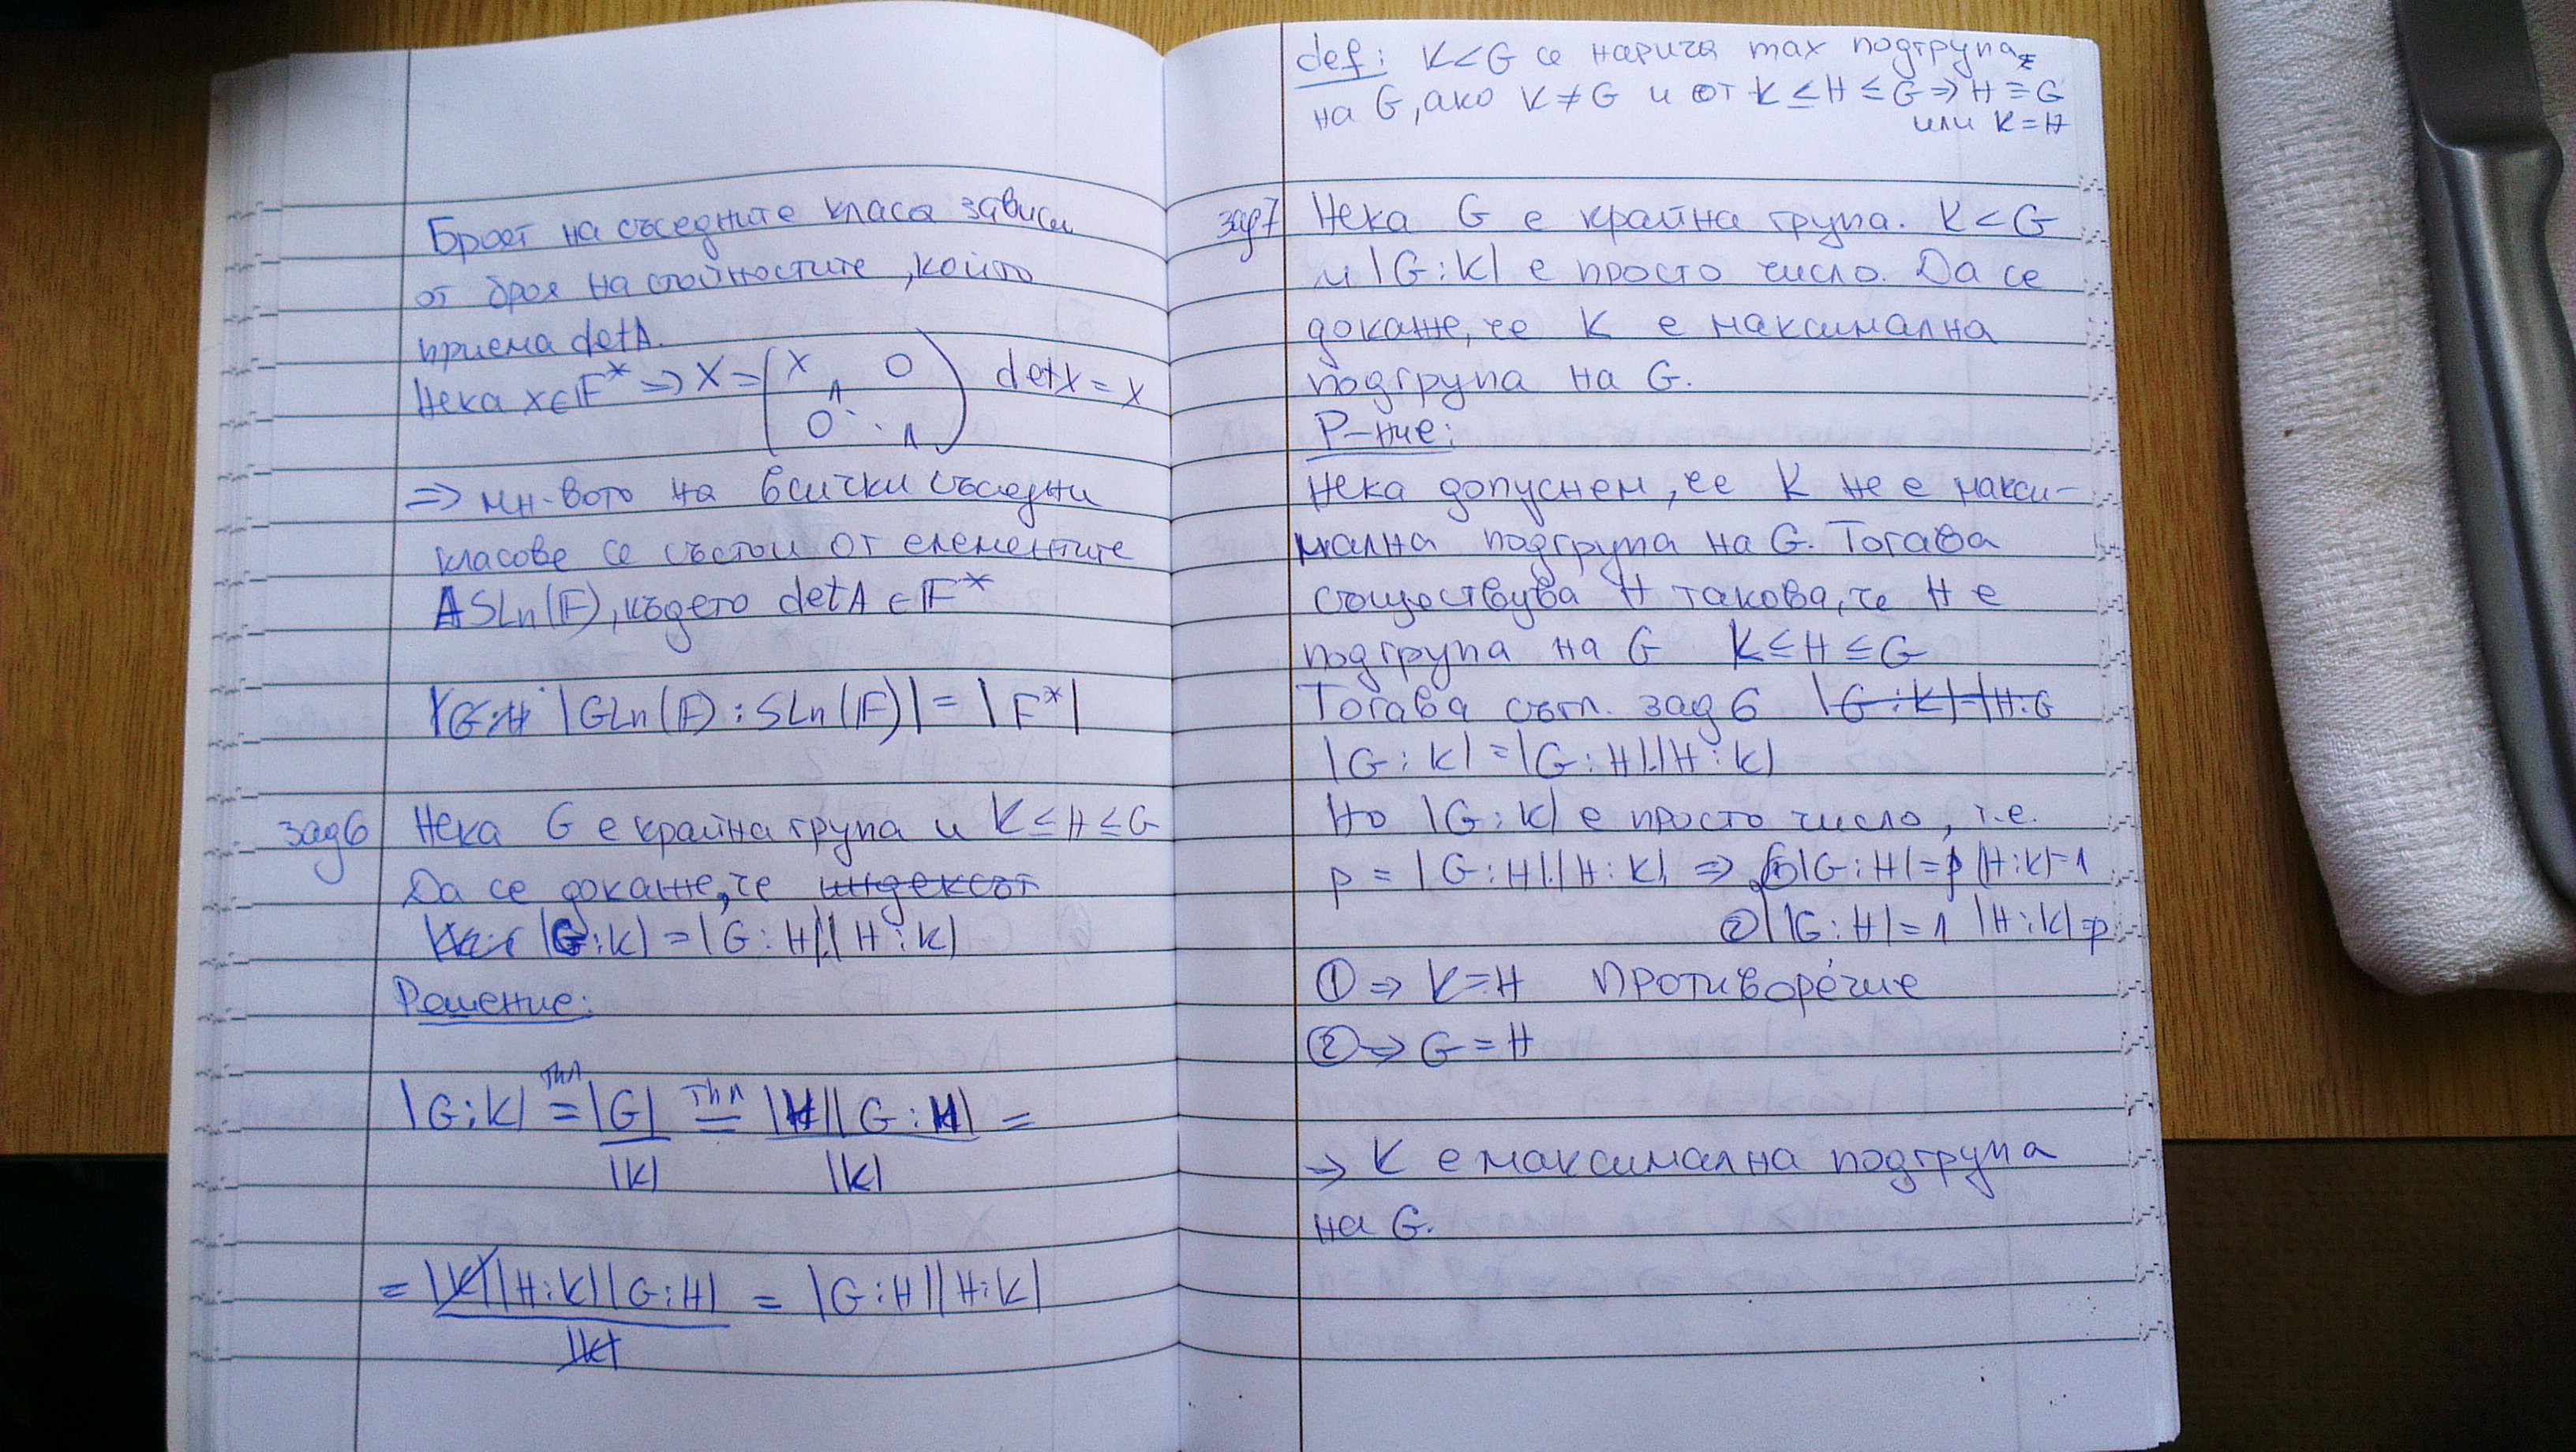 Броят на съседните класа зависи
от броя на стойностите, който
приема detA.
Нека x∈F* ⇒ X = (x 0 1 0 ⋱ 1) detX = x
⇒ мн-вото на всички съседни
класове се състои от елементите
ASLn(F), където detA ∈ F*
|GLn(F) : SLn(F)| = |F*|
зад6 Нека G е крайна група и K ≤ H ≤ G
Да се докаже, че индексът
|G:K| = |G:H|.|H:K|
Решение:
|G:K| =ThΛ |G|/|K| =ThΛ |H||G:H|/|K| =
= |K||H:K||G:H|/|K| = |G:H||H:K|
def: K<G се нарича max подгрупа
на G, ако K ≠ G и от K ≤ H ≤ G ⇒ H = G
или K = H
зад7 Нека G е крайна група. K < G
и |G:K| е просто число. Да се
докаже, че K е максимална
подгрупа на G.
Р-ние:
Нека допуснем, че K не е макси-
мална подгрупа на G. Тогава
съществува H такова, че H е
подгрупа на G K ≤ H ≤ G
Тогава съгл. зад 6 |G:K|=|H:G
|G:K| = |G:H|.|H:K|
Но |G:K| е просто число, т.е.
p = |G:H|.|H:K| ⇒ ① |G:H|=p |H:K|=1
② |G:H|=1 |H:K|=p
① ⇒ K=H Противоречие
② ⇒ G = H
⇒ K е максимална подгрупа
на G.